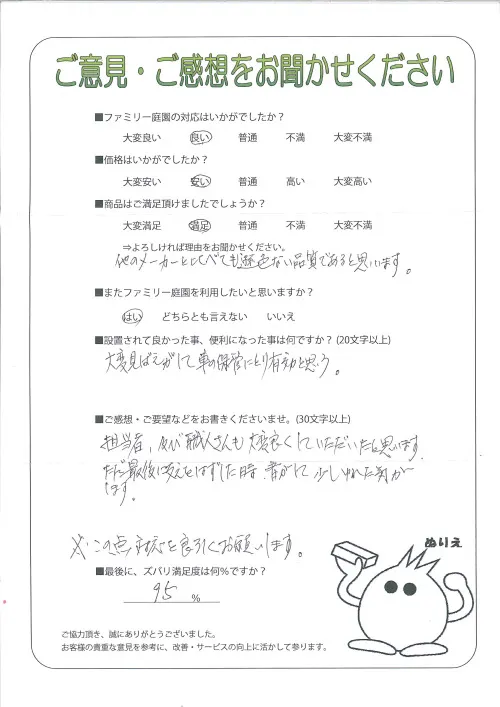 ご意見・ご感想をお聞かせください
■ファミリー庭園の対応はいかがでしたか?
大変良い 良い 普通 不満 大変不満
■価格はいかがでしたか?
大変安い 安い 普通 高い 大変高い
■商品はご満足頂けましたでしょうか?
大変満足 満足 普通 不満 大変不満
⇒よろしければ理由をお聞かせください。
他のメーカーと比べても遜色ない品質であると思います。
■またファミリー庭園を利用したいと思いますか?
はい どちらとも言えない いいえ
■設置されて良かった事、便利になった事は何ですか? (20文字以上)
大変見ばえがして車の保管にとり有効と思う。
■ご感想・ご要望などをお書きくださいませ。(30文字以上)
担当者、及び職人さんも大変良くしていただいたと思います。
ただ最後に支えをはずした時、音がして少しゆれた気が
します。
※この点、対応を良引くお願いします。
■最後に、ズバリ満足度は何%ですか?
95 %
ぬりえ
ご協力頂き、誠にありがとうございました。
お客様の貴重な意見を参考に、改善・サービスの向上に活かして参ります。